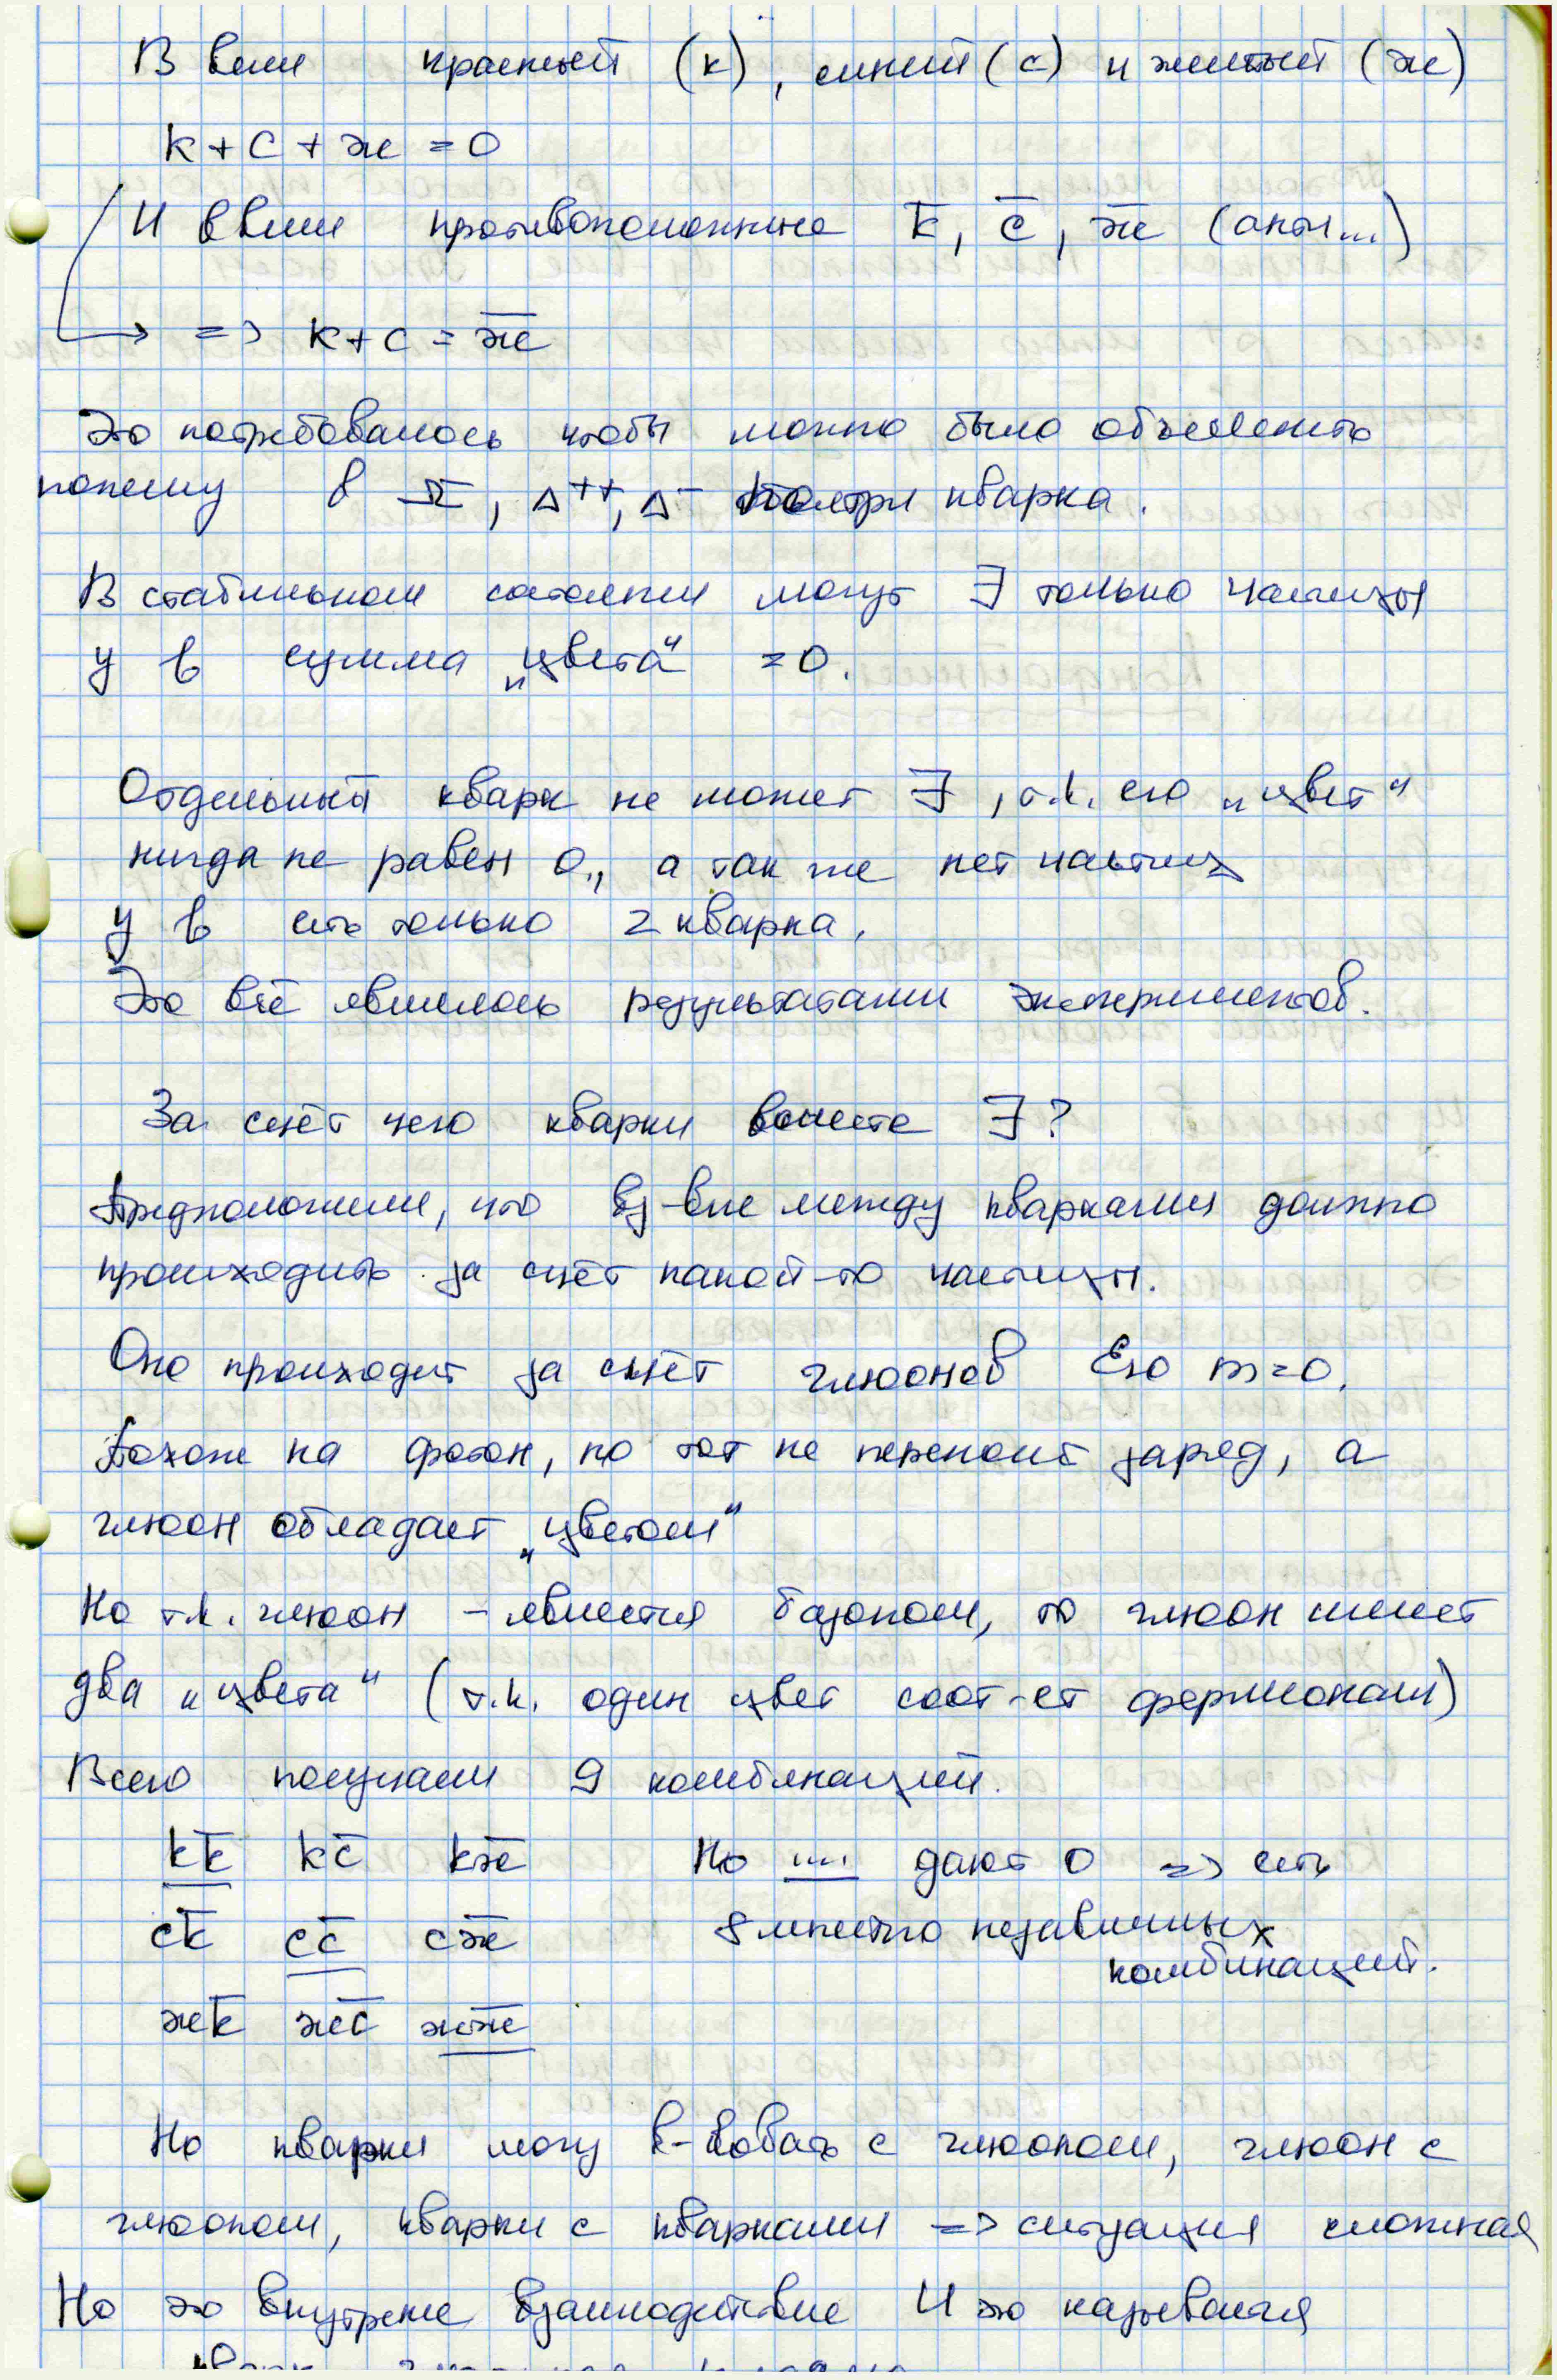 Ввели красный (к), синий (с) и желтый (ж)
к + с + ж = 0
И ввели противоположные к̅, с̅, ж̅ (анти...)
=> к + с = ж̅
Это потребовалось чтобы можно было объяснить
почему в Ω⁻, Δ⁺⁺, Δ⁻ по три кварка.
В стабильном состоянии могут ∃ только частицы
у в сумма „цвета“ = 0.
Отдельный кварк не может ∃, т.к. его „цвет“
нигда не равен 0, а так же нет частиц
у в есть только 2 кварка.
Это всё явилось результатами экспериментов.
За счёт чего кварки вместе ∃?
Предположили, что вз-вие между кварками должно
происходить за счёт какой-то частицы.
Оно происходит за счёт глюонов Его m=0.
Похоже на фотон, но тот не переносит заряд, а
глюон обладает „цветом“
Но т.к. глюон - является базоном, то глюон имеет
два „цвета“ (т.к. один цвет соот-ет фермионам)
Всего получаем 9 комбинаций.
кк̅ кс̅ кж̅ Но .... дают 0 => есть
ск̅ сс̅ сж̅ 8 линейно независимых
комбинаций.
жк̅ жс̅ жж̅
Но кварки могу в-вовать с глюоном, глюон с
глюоном, кварки с кварками => ситуация сложная
Но это внутрение взаимодействие И это называется